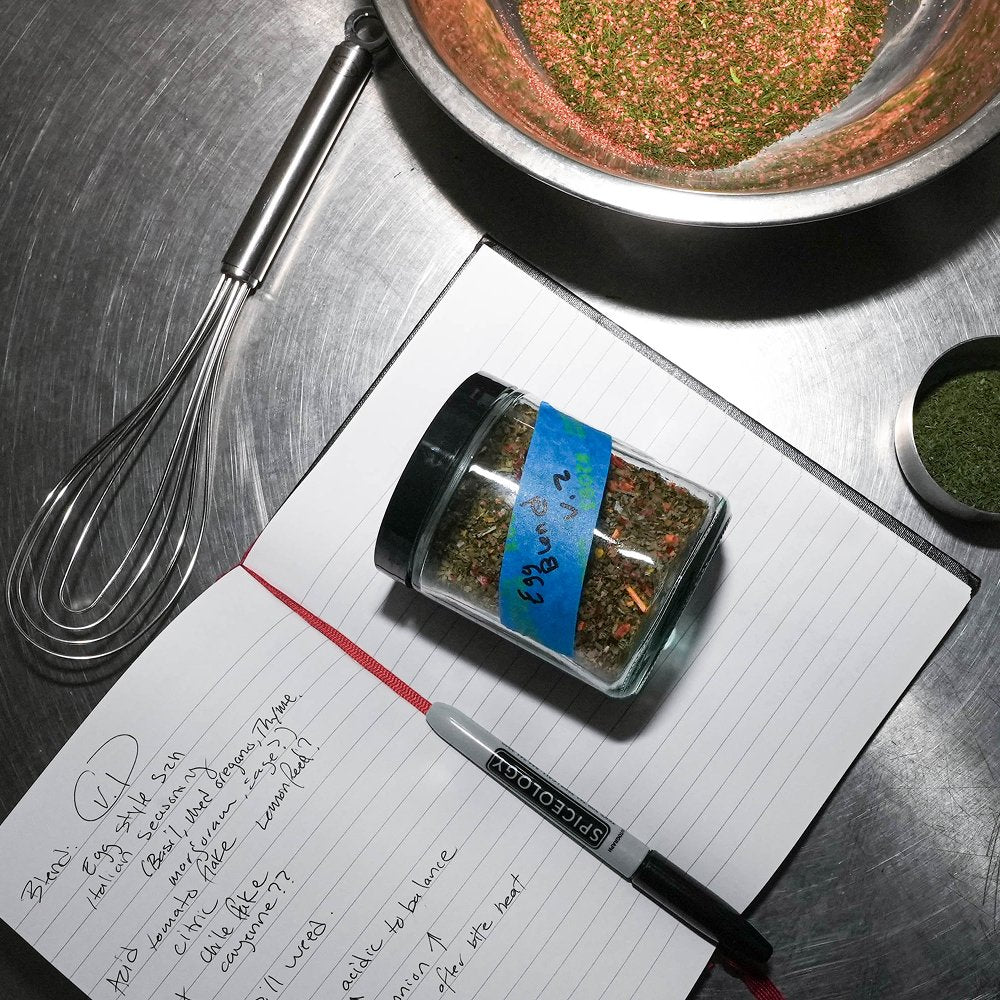 Egg
Blend
V.2
SPICEOLOGY
V.1
Blend:
Egg style szn
Italian seasoning
(Basil, Med oregano, Thyme,
marjoram, sage?)
Acid tomato flake Lemon peel?
citric
chile flake
cayenne??
ill weed.
acidic to balance
nnion ↑
after bite heat